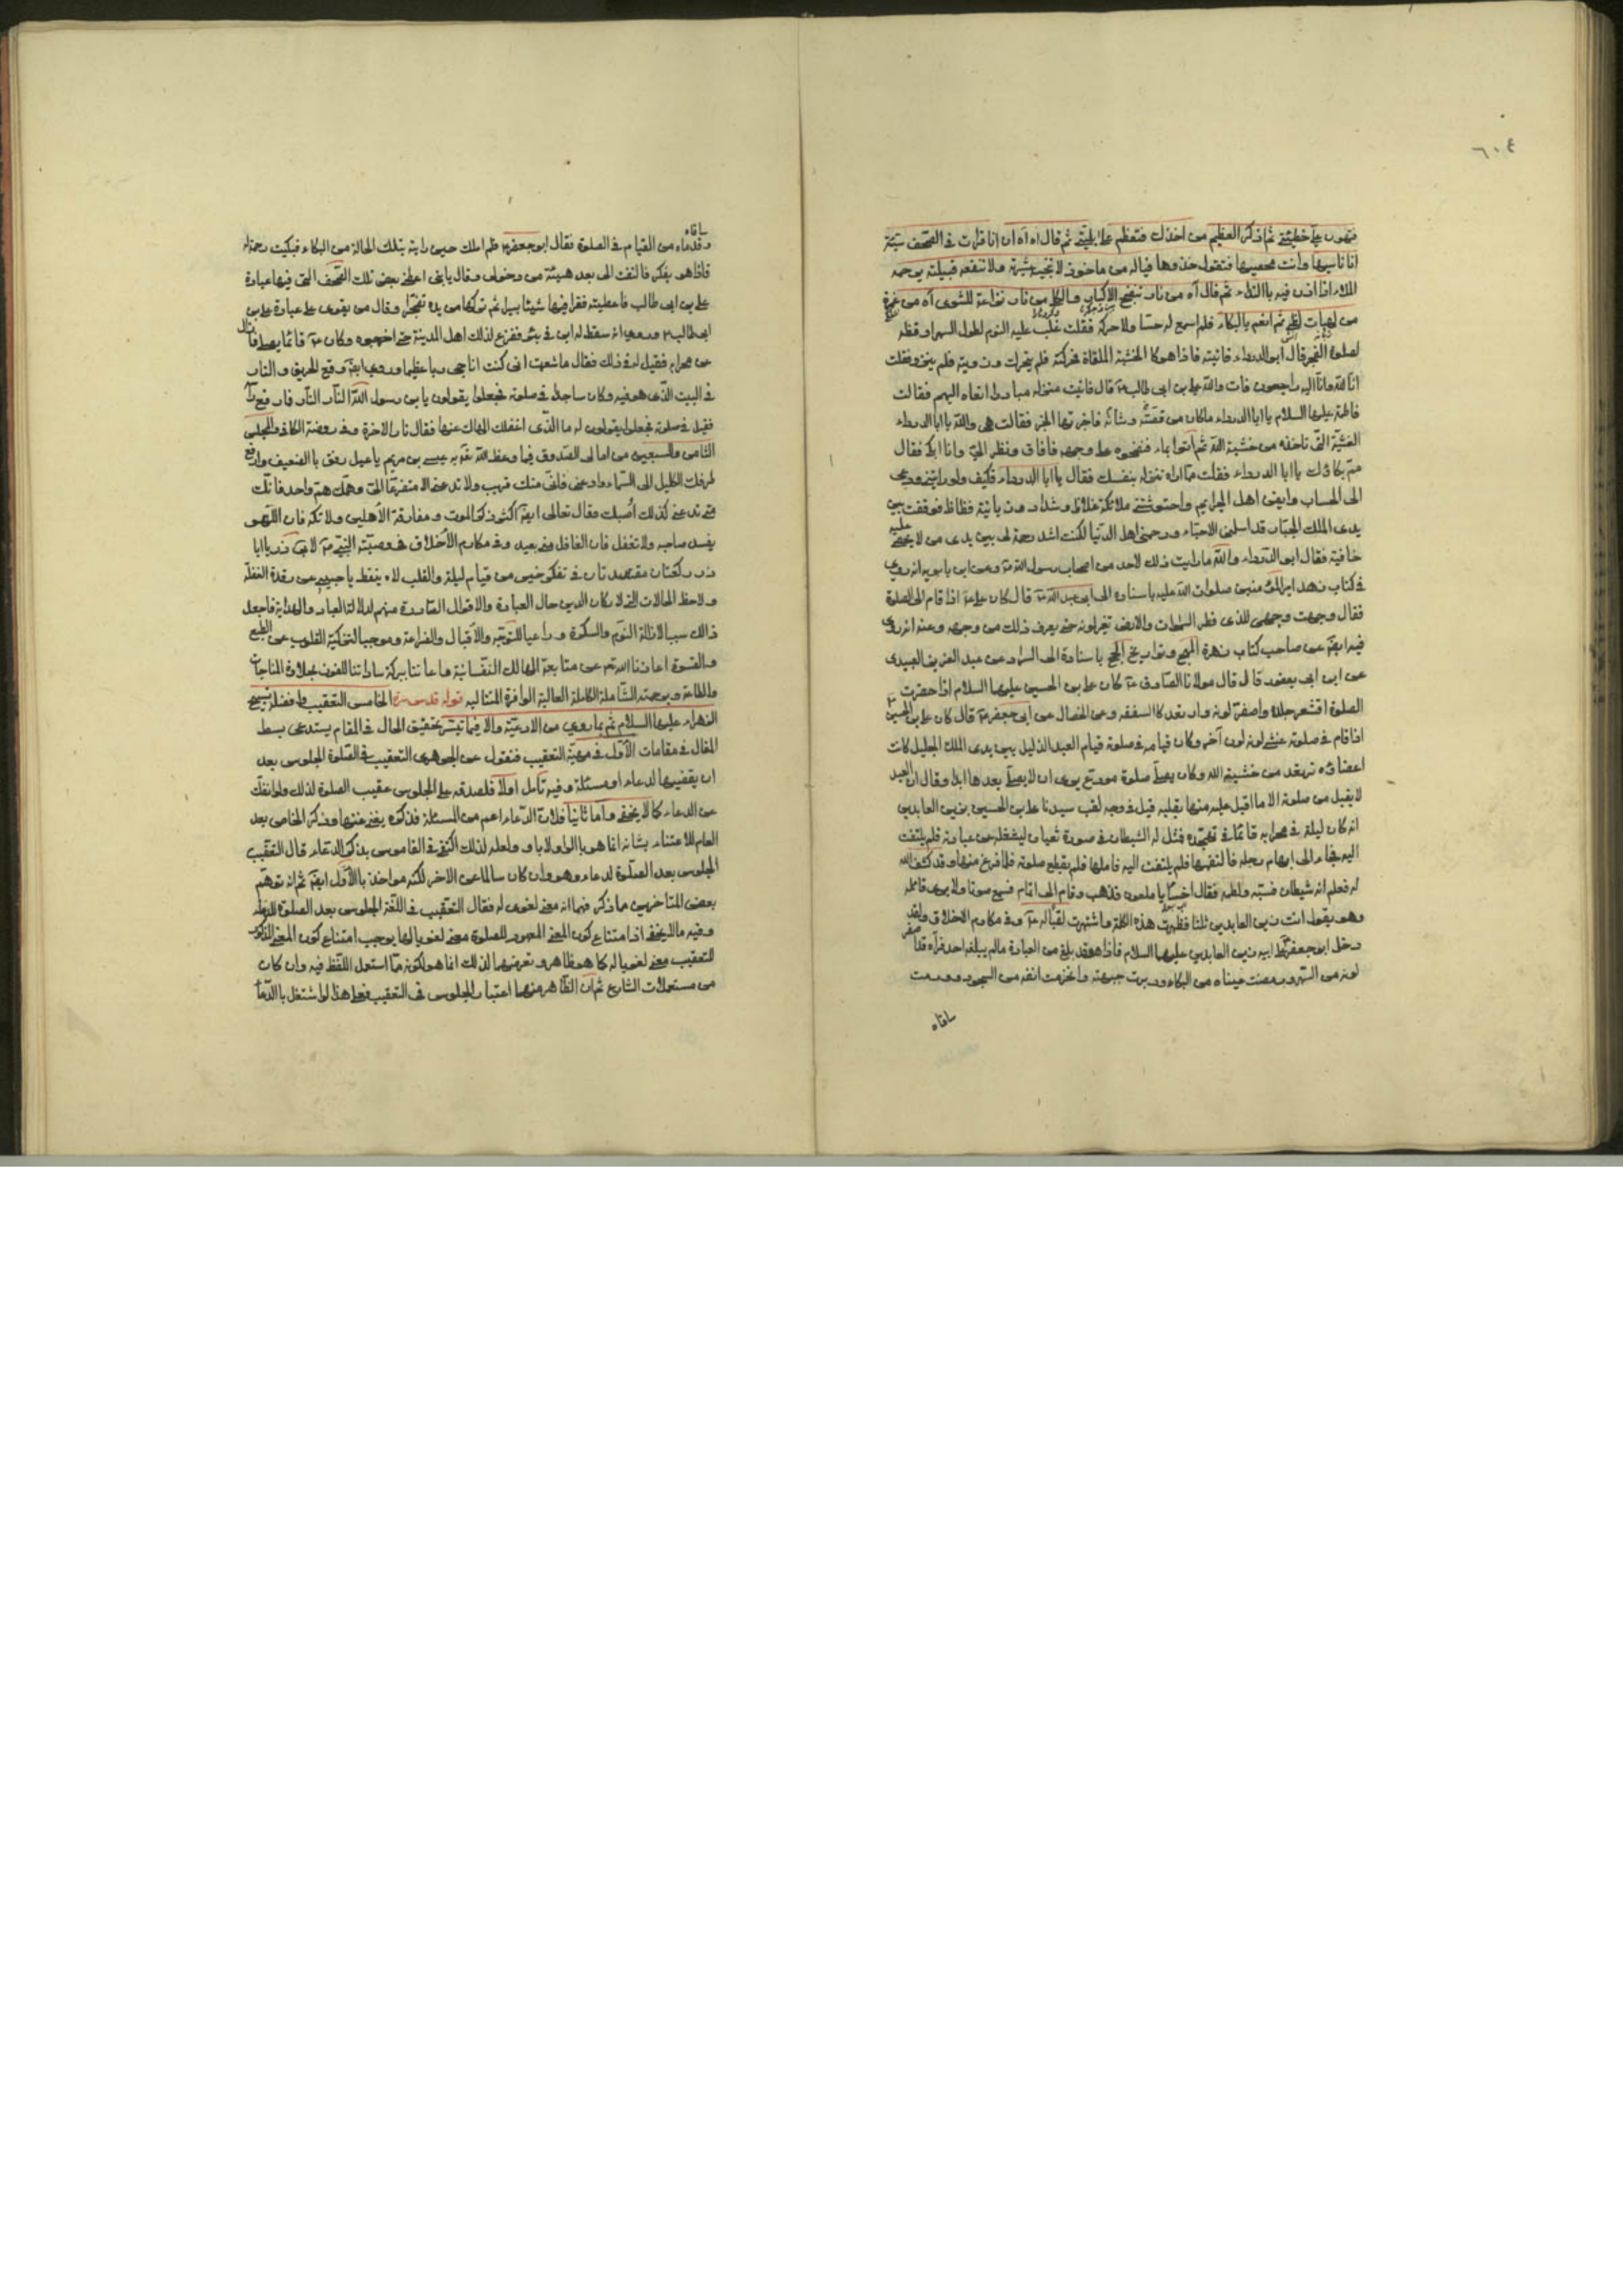 ٦٠٤
فتهون على خطيئتي ثم اذكر العظيم من اخذك فتعظم على بليتى ثم قال اه اه ان انا قرات فى الصحف سيئة
انا ناسيها وانت محصيها فتقول خذوه فياله من ماخوذ لا تنجيه عشيرته ولا تنفعه قبيلته يرحمه
الملاء اذا اذن فيه بالنداء ثم قال آه من نار تنضج الاكباد والكلى آه من نار نزاعة للشوى آه من غمرة
من لهبات لظى ثم انغم بالبكاء فلم اسمع له حسا ولا حركة فقلت غلب عليه النوم لطول السهر اوقظه
لصلوة الفجر قال ابو الدرداء فاتيته فاذا هو كالخشبة الملقاة فحركته فلم يتحرك وزويته فلم ينزو فقلت
انا لله وانا اليه راجعون مات والله على بن ابى طالب قال فاتيت منزله مبادرا انعاه اليهم فقالت
فاطمة عليها السلام يا ابا الدرداء ما كان من قصته وشانه فاخبرتها الخبر فقالت هى والله يا ابا الدرداء
الغشية التى تاخذه من خشية الله ثم اتوا بماء فنضحوه على وجهه فافاق ونظر الى وانا ابكى فقال
مم بكاؤك يا ابا الدرداء فقلت مما اراه تنزله بنفسك فقال يا ابا الدرداء فكيف ولو رايتنى ودعى
الى الحساب وايقن اهل الجرايم واحتوشتنى ملائكة غلاظ وشداد وزبانية فظاظ فوقفت بين
يدى الملك الجبار قد اسلمنى الاحباء ورحمنى اهل الدنيا لكنت اشد رحمة لى بين يدى من لا يخفى عليه
خافية فقال ابو الدرداء والله ما رايت ذلك لاحد من اصحاب رسول الله وعن ابن بابويه انه روى
فى كتاب زهد امير المؤمنين صلوات الله عليه باسناده الى ابى عبد الله قال كان على اذا قام الى الصلوة
فقال وجهت وجهى للذى فطر السموات والارض تغير لونه حتى يعرف ذلك من وجهه وعنه انه روى
فيه ايضا عن صاحب كتاب زهرة المهج وتواريخ الحجج باسناده الى السراد عن عبد العزيز العبدى
عن ابن ابى يعفور قال قال مولانا الصادق كان على بن الحسين عليهما السلام اذا حضرت
الصلوة اقشعر جلده واصفر لونه وارتعد كالسعفة وعن الخصال عن ابى جعفر قال كان على بن الحسين
اذا قام فى صلوته غشى لونه لون آخر وكان قيامه فى صلوته قيام العبد الذليل بين يدى الملك الجليل كانت
اعضاؤه ترتعد من خشية الله وكان يصلى صلوة مودع يرى ان لا يصلى بعدها ابدا وقال ان العبد
لا يقبل من صلوته الا ما اقبل عليه منها بقلبه قيل فى وجه لقب سيدنا على بن الحسين بزين العابدين
انه كان ليلة فى محرابه قائما فى تهجده فتمثل له الشيطان فى صورة ثعبان ليشغله عن عبادته فلم يلتفت
اليه فجاء الى ابهام رجله فالتقمها فلم يلتفت اليه فآلمها فلم يقطع صلوته فلما فرغ منها وقد كشف الله
له فعلم انه شيطان فسبه ولطمه فقال اخسا يا ملعون فذهب وقام الى اتمام فسمع صوتا ولا يرى قائله
وهو يقول انت زين العابدين ثلثا فظهرت هذه الكلمة واشتهرت لقبا له وفى مكارم الاخلاق ولقد
دخل ابو جعفر على ابيه زين العابدين عليهما السلام فاذا هو قد بلغ من العبادة ما لم يبلغه احد فرآه قد اصفر
لونه من السهر ورمصت عيناه من البكاء ودبرت جبهته وانخرمت انفه من السجود وورمت
ساقاه
ساقاه
وقدماه من القيام فى الصلوة فقال ابو جعفر فلم املك حين رايته بتلك الحالة من البكاء فبكيت رحمة له
فاذا هو يفكر فالتفت الى بعد هنيئة من دخولى وقال يا بنى اعطنى بعض تلك الصحف التى فيها عبادة
على بن ابى طالب فاعطيته فقرا فيها شيئا يسيرا ثم تركها من يده تضجرا وقال من يقوى على عبادة على بن
ابى طالب وروى انه سقط له ابن فى بئر ففزع لذلك اهل المدينة حتى اخرجوه وكان قائما يصلى فما زال
عن محرابه فقيل له فى ذلك فقال ما شعرت انى كنت اناجى ربا عظيما وروى ايضا وقع الحريق والنار
فى البيت الذى هو فيه وكان ساجدا فى صلوته فجعلوا يقولون يا بن رسول الله النار النار فما رفع راسه
فقيل فى صلوته فجعلوا يقولون له ما الذى اغفلك الهاك عنها فقال نار الاخرة وفى روضة الكافى والمجلس
الثامن والسبعين من امالى الصدوق فيما وعظ الله به عيسى بن مريم يا عيسى رفق بالضعيف وارفع
طرفك الكليل الى السماء وادعنى فانى منك قريب ولا تدعنى الا متضرعا الى وهمك هم واحد فانك
متى تدعنى كذلك اجبك وقال تعالى ايضا اكثر ذكر الموت ومفارقة الأهلين ولا تله فان اللهو
يفسد صاحبه ولا تغفل فان الغافل منى بعيد وفى مكارم الأخلاق فى وصية النبى لابى ذر يا ابا
ذر ركعتان مقتصدتان فى تفكر خير من قيام ليلة والقلب لاه
ولاحظ الحالات
ذلك سببا لازالة النوم والسكرة وداعيا للتوجه والاقبال والضراعة وموجبا لتزكية القلوب عن الطبع
والقسوة اعاذنا الله عن متابعة المهالك النفسانية
والطاعة وبرحمته الشاملة الكاملة العالية الوافرة قوله قدس سره الخامس التعقيب وافضله تسبيح
الزهراء عليها السلام ثم بما روى من الادعية والا فبما تيسر تحقيق الحال فى المقام يستدعى بسط
المقال فى مقامات الأول فى مهية التعقيب فنقول عن الجوهرى التعقيب فى الصلوة الجلوس بعد
ان يقضيها لدعاء او مسئلة وفيه تأمل اولا فلصدقه على الجلوس عقيب الصلوة لذلك ولو انفك
عن الدعاء كما لا يخفى واما ثانيا فلان الدعاء اعم من المسئلة فذكره يغنى عنها وذكر الخاص بعد
العام للاعتناء بشانه انما هو بالواو لا باو ولعله لذلك اكتفى فى القاموس بذكر الدعاء قال التعقيب
الجلوس بعد الصلوة لدعاء وهو وان كان سالما عن الاخر لكنه مواخذ بالأول ايضا ثم انه توهم
بعض المتاخرين مما ذكر فيهما انه معنى لغوى له فقال التعقيب فى اللغة الجلوس بعد الصلوة للدعاء
وفيه ما لا يخفى اذ امتناع كون المعنى المعهود للصلوة معنى لغويا لها يوجب امتناع كون المعنى المذكور
للتعقيب معنى لغويا له كما هو ظاهر وتعرضهما لذلك انما هو لكونه مما استعمل اللفظ فيه وان كان
من مستعملات الشارع ثم ان الظاهر منهما اعتبار الجلوس فى التعقيب فعلى هذا لو اشتغل بالدعاء